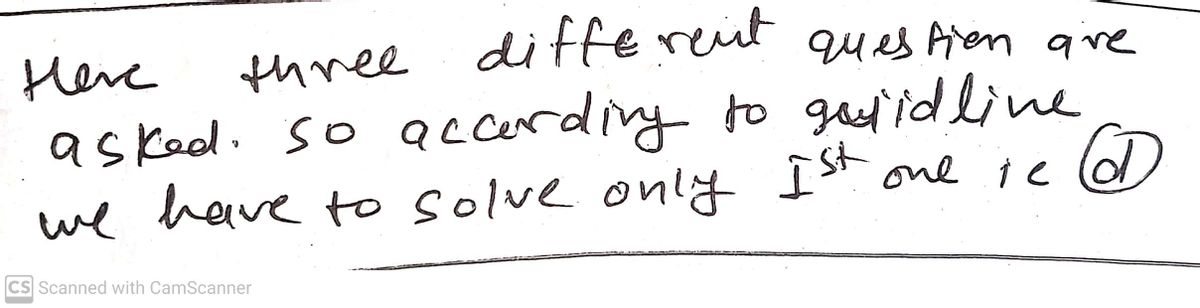 Here three different question are
asked. so according to guidline
we have to solve only Ist one ie (d)
CS Scanned with CamScanner